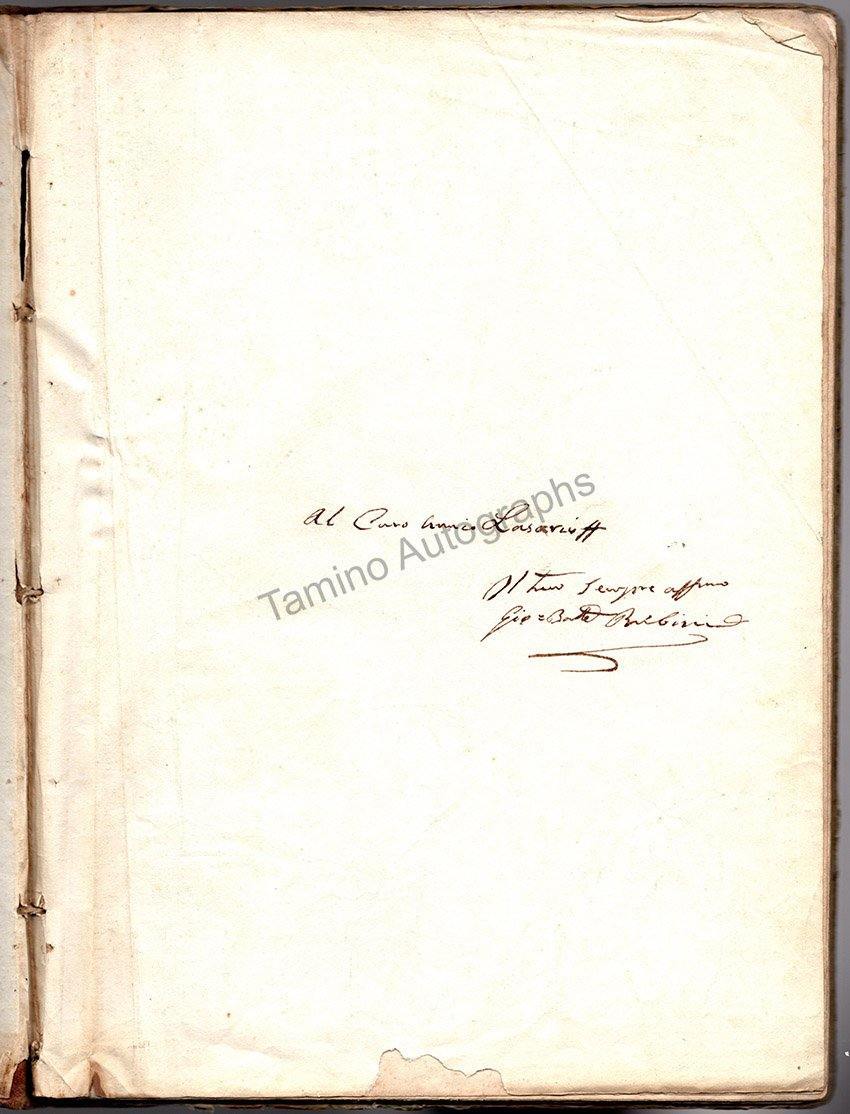 Al Caro Amico Lasarieff
Tamino Autographs
Il tuo sempre affmo
Gio=Batta Rubini